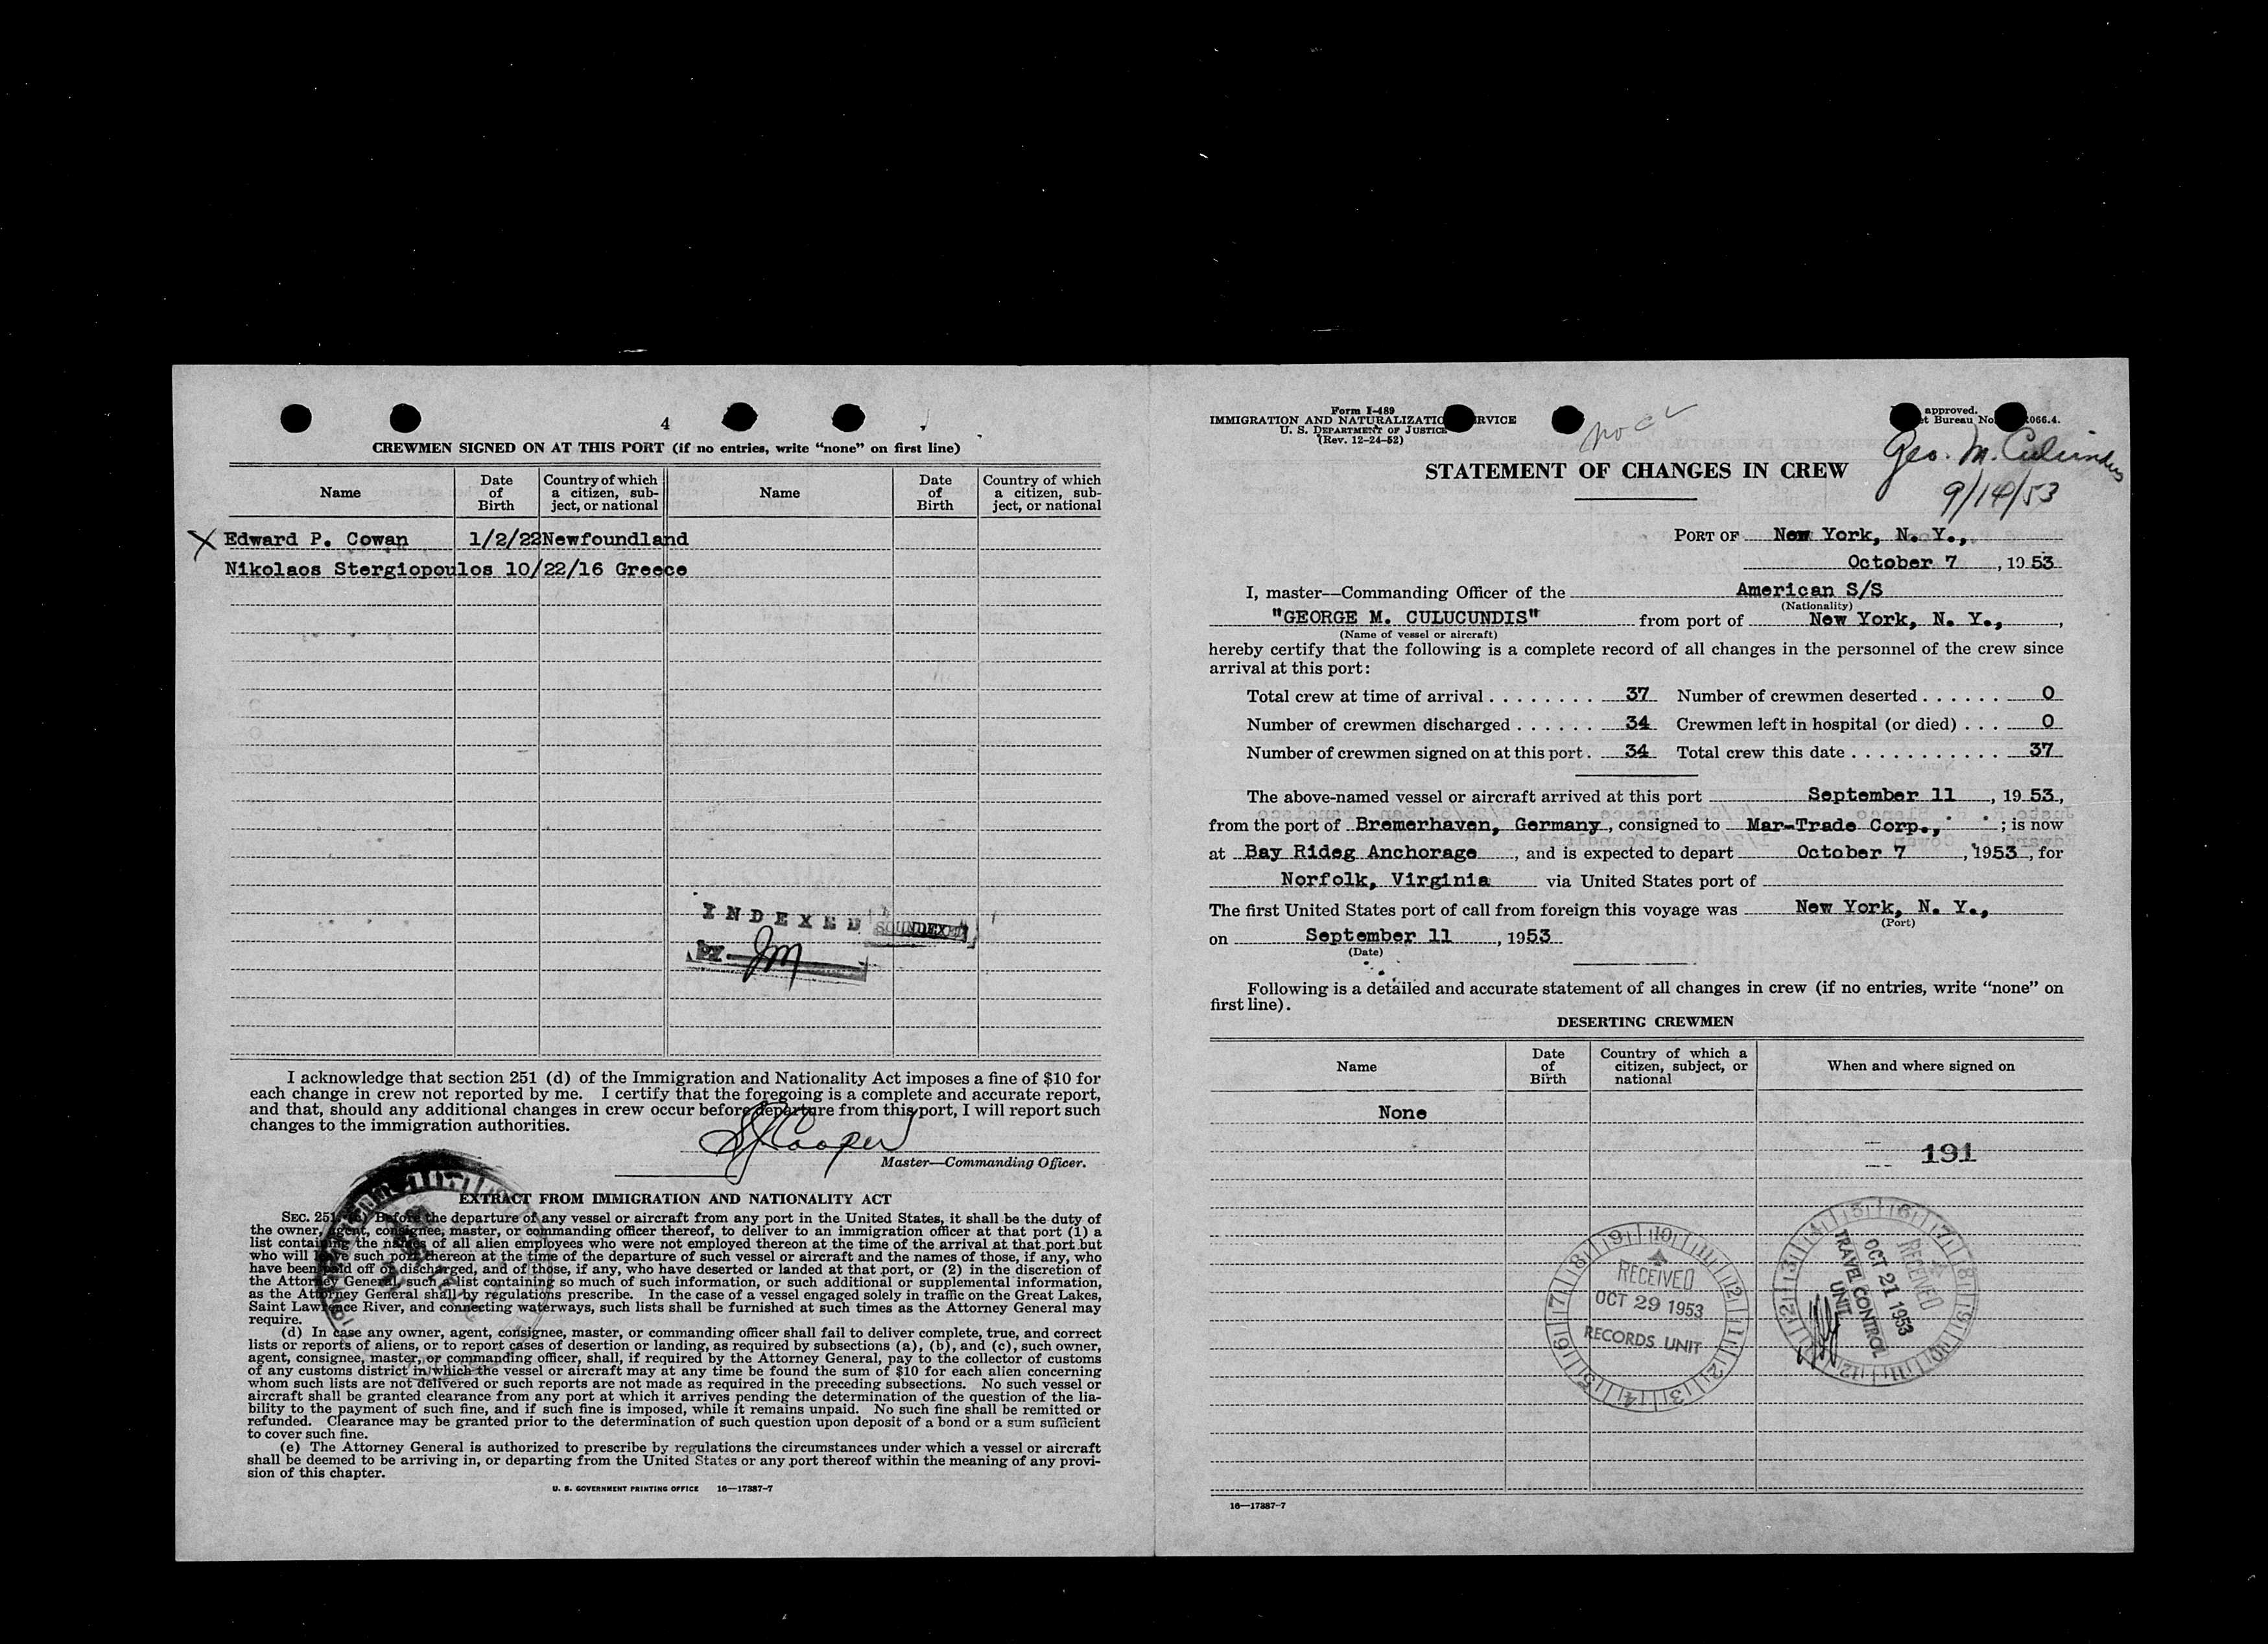 4
CREWMEN SIGNED ON AT THIS PORT (if no entries, write “none” on first line)
Name Date of Birth Country of which a citizen, sub-ject, or national Name Date of Birth Country of which a citizen, sub-ject, or national
X Edward P. Cowan 1/2/22 Newfoundland
Nikolaos Stergiopoulos 10/22/16 Greece
INDEXED SOUNDEXED
BY JM
I acknowledge that section 251 (d) of the Immigration and Nationality Act imposes a fine of $10 for
each change in crew not reported by me. I certify that the foregoing is a complete and accurate report,
and that, should any additional changes in crew occur before departure from this port, I will report such
changes to the immigration authorities.
SJ Cooper
Master—Commanding Officer.
EXTRACT FROM IMMIGRATION AND NATIONALITY ACT
SEC. 251 Before the departure of any vessel or aircraft from any port in the United States, it shall be the duty of
the owner, agent, consignee, master, or commanding officer thereof, to deliver to an immigration officer at that port (1) a
list containing the names of all alien employees who were not employed thereon at the time of the arrival at that port but
who will leave such port thereon at the time of the departure of such vessel or aircraft and the names of those, if any, who
have been paid off or discharged, and of those, if any, who have deserted or landed at that port, or (2) in the discretion of
the Attorney General, such a list containing so much of such information, or such additional or supplemental information,
as the Attorney General shall by regulations prescribe. In the case of a vessel engaged solely in traffic on the Great Lakes,
Saint Lawrence River, and connecting waterways, such lists shall be furnished at such times as the Attorney General may
require.
(d) In case any owner, agent, consignee, master, or commanding officer shall fail to deliver complete, true, and correct
lists or reports of aliens, or to report cases of desertion or landing, as required by subsections (a), (b), and (c), such owner,
agent, consignee, master, or commanding officer, shall, if required by the Attorney General, pay to the collector of customs
of any customs district in which the vessel or aircraft may at any time be found the sum of $10 for each alien concerning
whom such lists are not delivered or such reports are not made as required in the preceding subsections. No such vessel or
aircraft shall be granted clearance from any port at which it arrives pending the determination of the question of the lia-
bility to the payment of such fine, and if such fine is imposed, while it remains unpaid. No such fine shall be remitted or
refunded. Clearance may be granted prior to the determination of such question upon deposit of a bond or a sum sufficient
to cover such fine.
(e) The Attorney General is authorized to prescribe by regulations the circumstances under which a vessel or aircraft
shall be deemed to be arriving in, or departing from the United States or any port thereof within the meaning of any provi-
sion of this chapter.
U. S. GOVERNMENT PRINTING OFFICE 16—17387-7
Form I-489
IMMIGRATION AND NATURALIZATIO RVICE
U. S. DEPARTMENT OF JUSTICE
(Rev. 12-24-52)
approved.
t Bureau No. 066.4.
STATEMENT OF CHANGES IN CREW
9/14/53
PORT OF New York, N. Y.,
October 7, 1953
I, master—Commanding Officer of the American S/S
(Nationality)
"GEORGE M. CULUCUNDIS" from port of New York, N. Y.,
(Name of vessel or aircraft)
hereby certify that the following is a complete record of all changes in the personnel of the crew since
arrival at this port:
Total crew at time of arrival 37 Number of crewmen deserted 0
Number of crewmen discharged 34 Crewmen left in hospital (or died) 0
Number of crewmen signed on at this port 34 Total crew this date 37
The above-named vessel or aircraft arrived at this port September 11, 1953,
from the port of Bremerhaven, Germany, consigned to Mar-Trade Corp., ; is now
at Bay Rideg Anchorage, and is expected to depart October 7, 1953, for
Norfolk, Virginia via United States port of
The first United States port of call from foreign this voyage was New York, N. Y.,
(Port)
on September 11, 1953
(Date)
Following is a detailed and accurate statement of all changes in crew (if no entries, write “none” on
first line).
DESERTING CREWMEN
Name Date of Birth Country of which a citizen, subject, or national When and where signed on
None
191
RECEIVED
OCT 29 1953
RECORDS UNIT
RECEIVED
OCT 21 1953
TRAVEL CONTROL
UNIT
16—17387-7